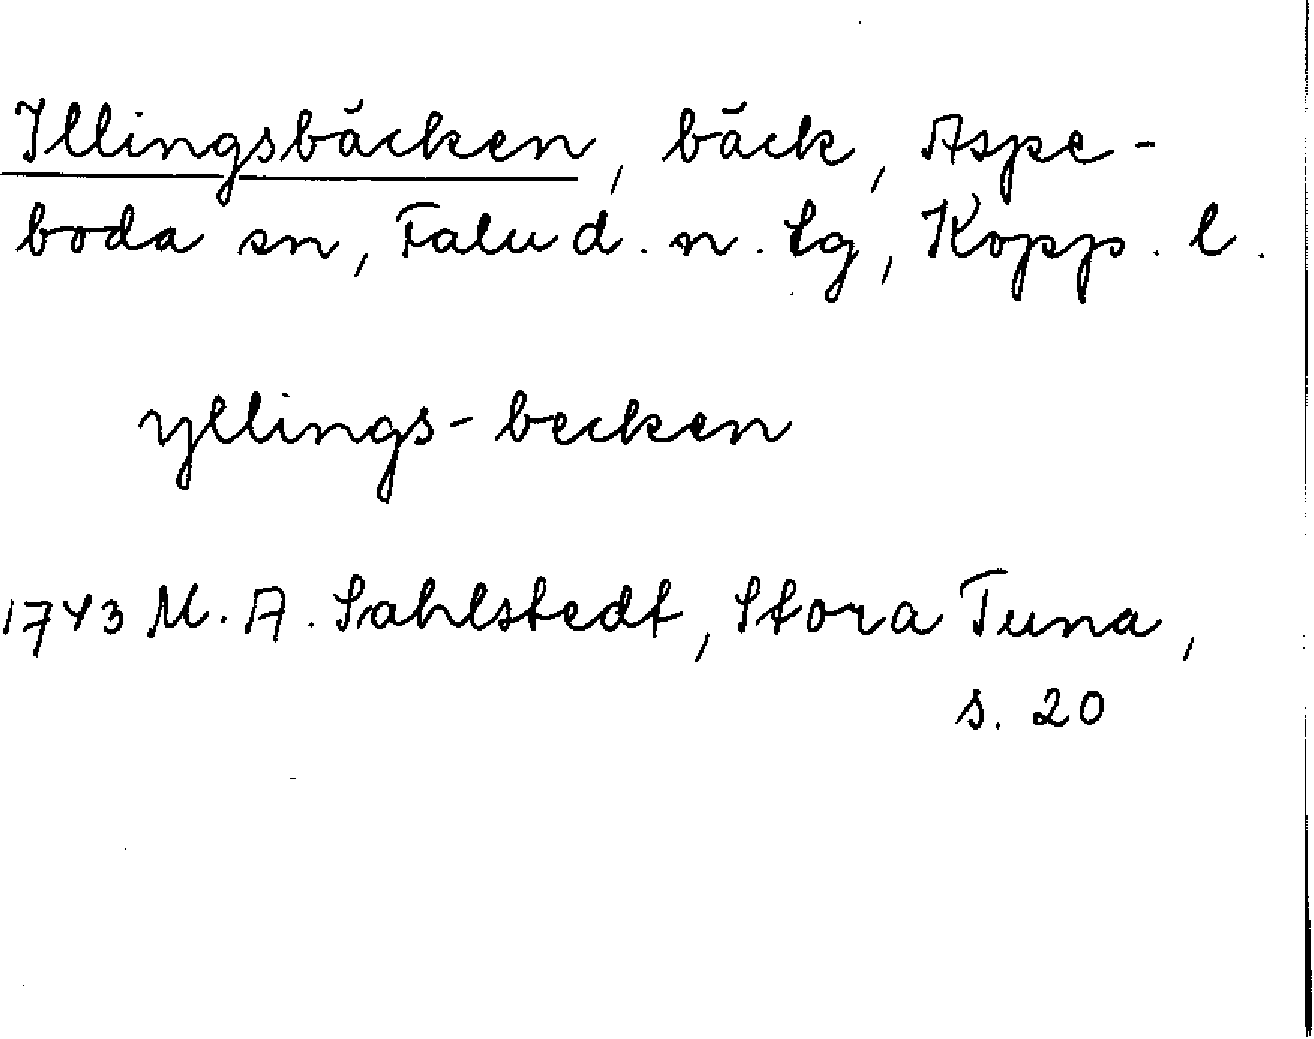 Illingsbäcken, bäck, Aspe-
boda sn, Falu d. n. tg, Kopp. l.
yllings-becken
1743 M. A. Sahlstedt, Stora Tuna,
s. 20